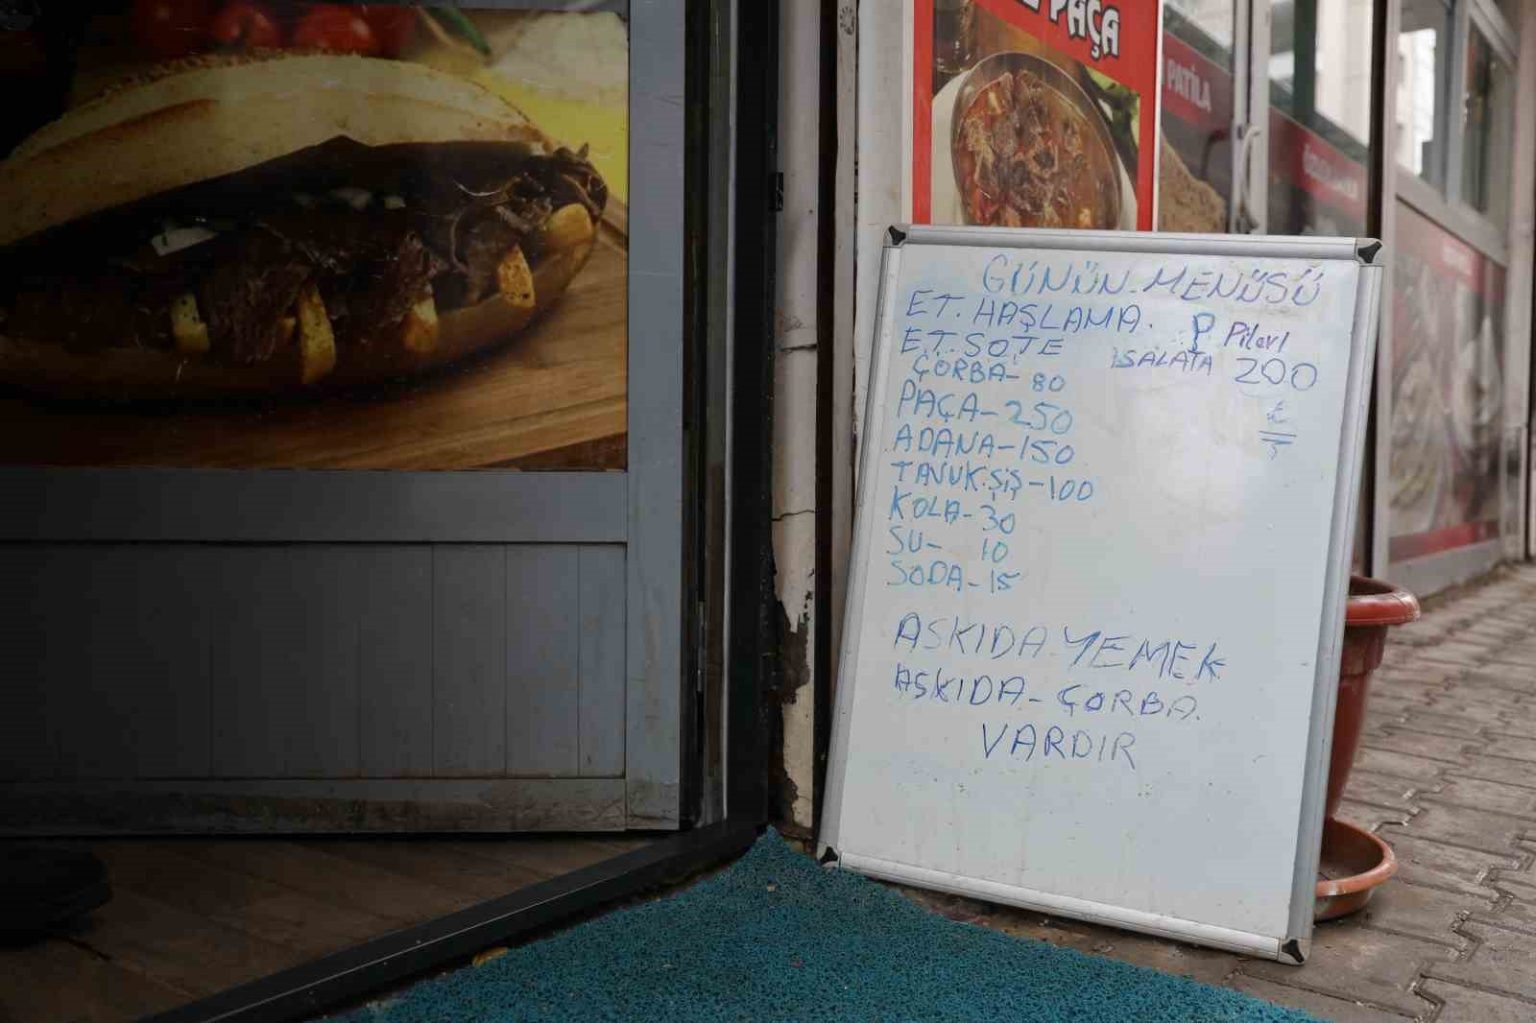 PAÇA
PATİLA
GÜNÜN MENÜSÜ
ET. HAŞLAMA. P Pilavı
ET SOTE SALATA 200
ÇORBA- 80
PAÇA-250
ADANA-150
TAVUK.ŞİŞ-100
KOLA-30
SU- 10
SODA-15
ASKIDA YEMEK
ASKIDA-ÇORBA.
VARDIR